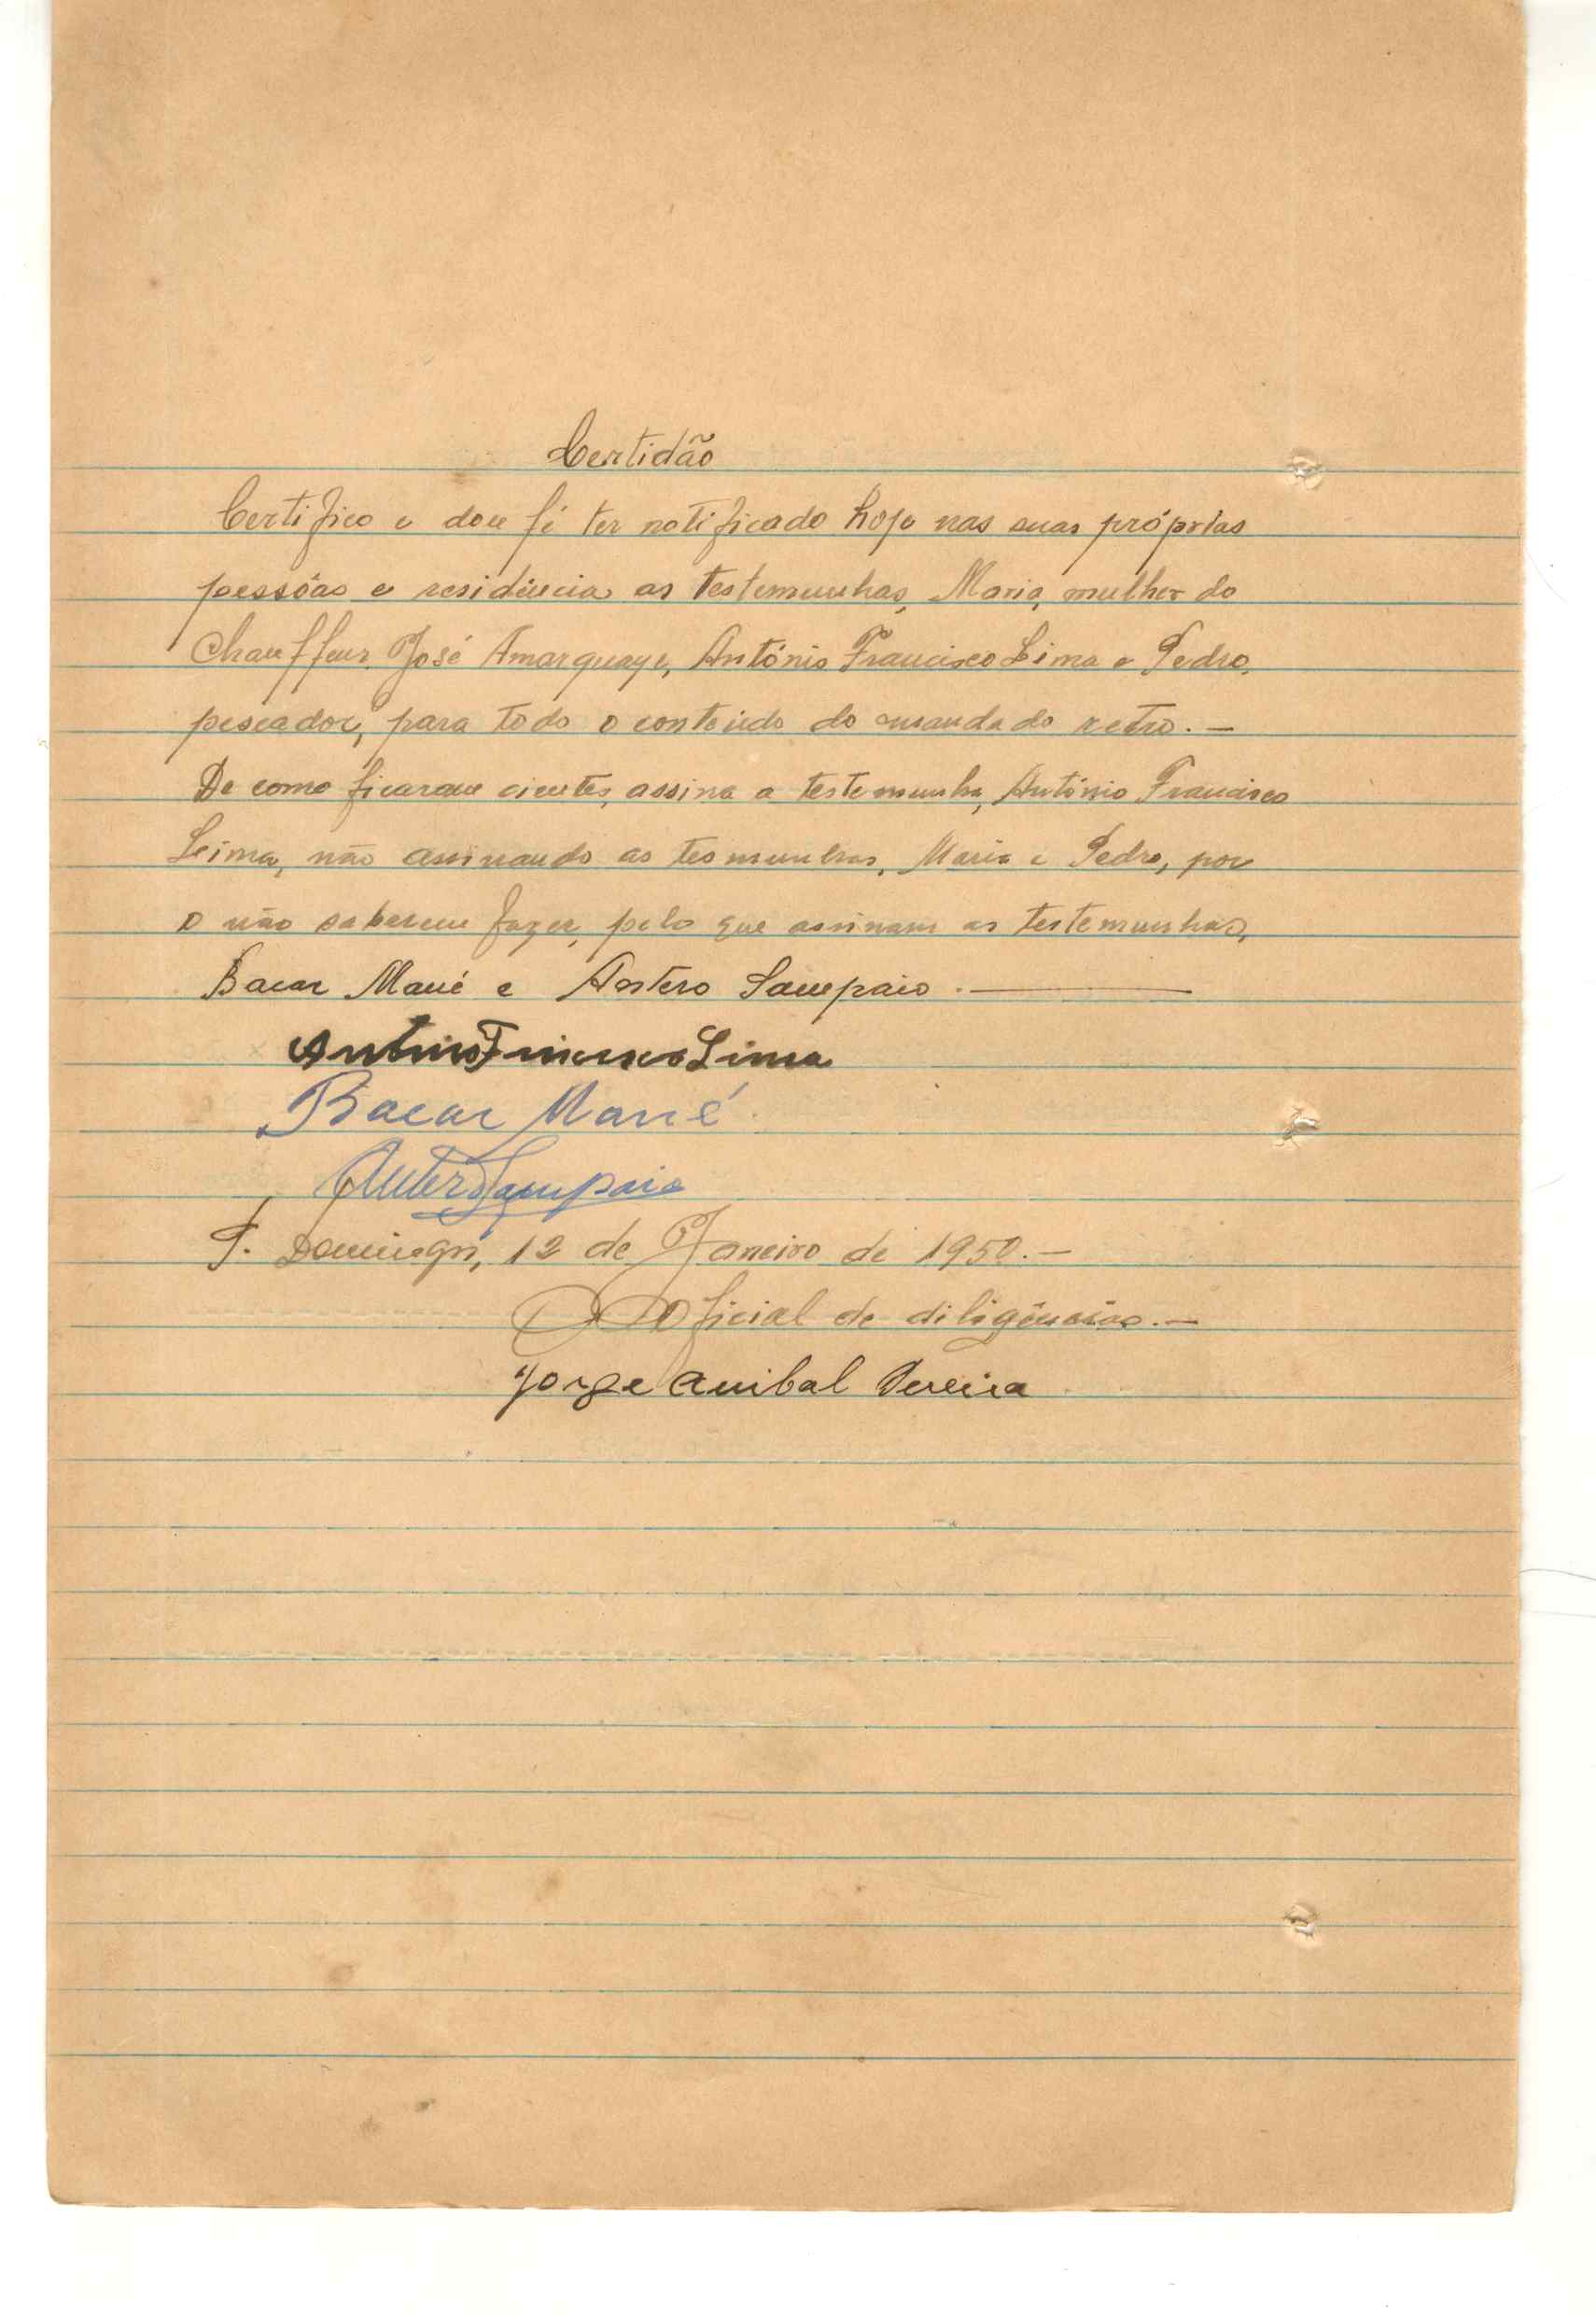 Certidão
Certifico e dou fé ter notificado hoje nas suas próprias
pessôas e residência as testemunhas, Maria, mulher do
Chauffeur José Amarquaye, António Francisco Lima e Pedro,
pescador, para todo o conteúdo do mandado retro. —
De como ficaram cientes, assina a testemunha, António Francisco
Lima, não assinando as tesmunhas, Maria e Pedro, por
o não saberem fazer, pelo que assinam as testemunhas,
Bacar Mané e Antero Sampaio. —
António Francisco Lima
Bacar Mané
Antero Sampaio
S. Domingos, 12 de Janeiro de 1950. —
O Oficial de diligências. —
Jorge Anibal Pereira